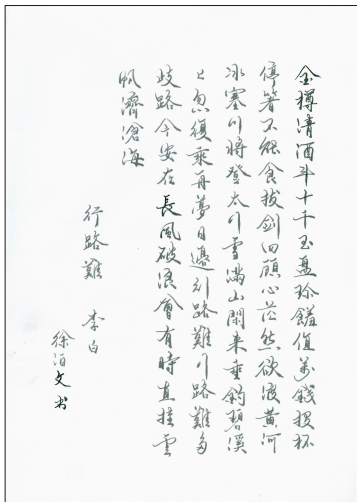 金樽清酒斗十千玉盤珍饈值萬錢投杯
停箸不能食拔劍四顧心茫然欲渡黃河
冰塞川將登太行雪滿山閑来垂釣碧溪
上忽復乘舟夢日邊行路難行路難多
歧路今安在長風破浪會有時直挂雲
帆濟滄海
行路難 李白
徐泊文书